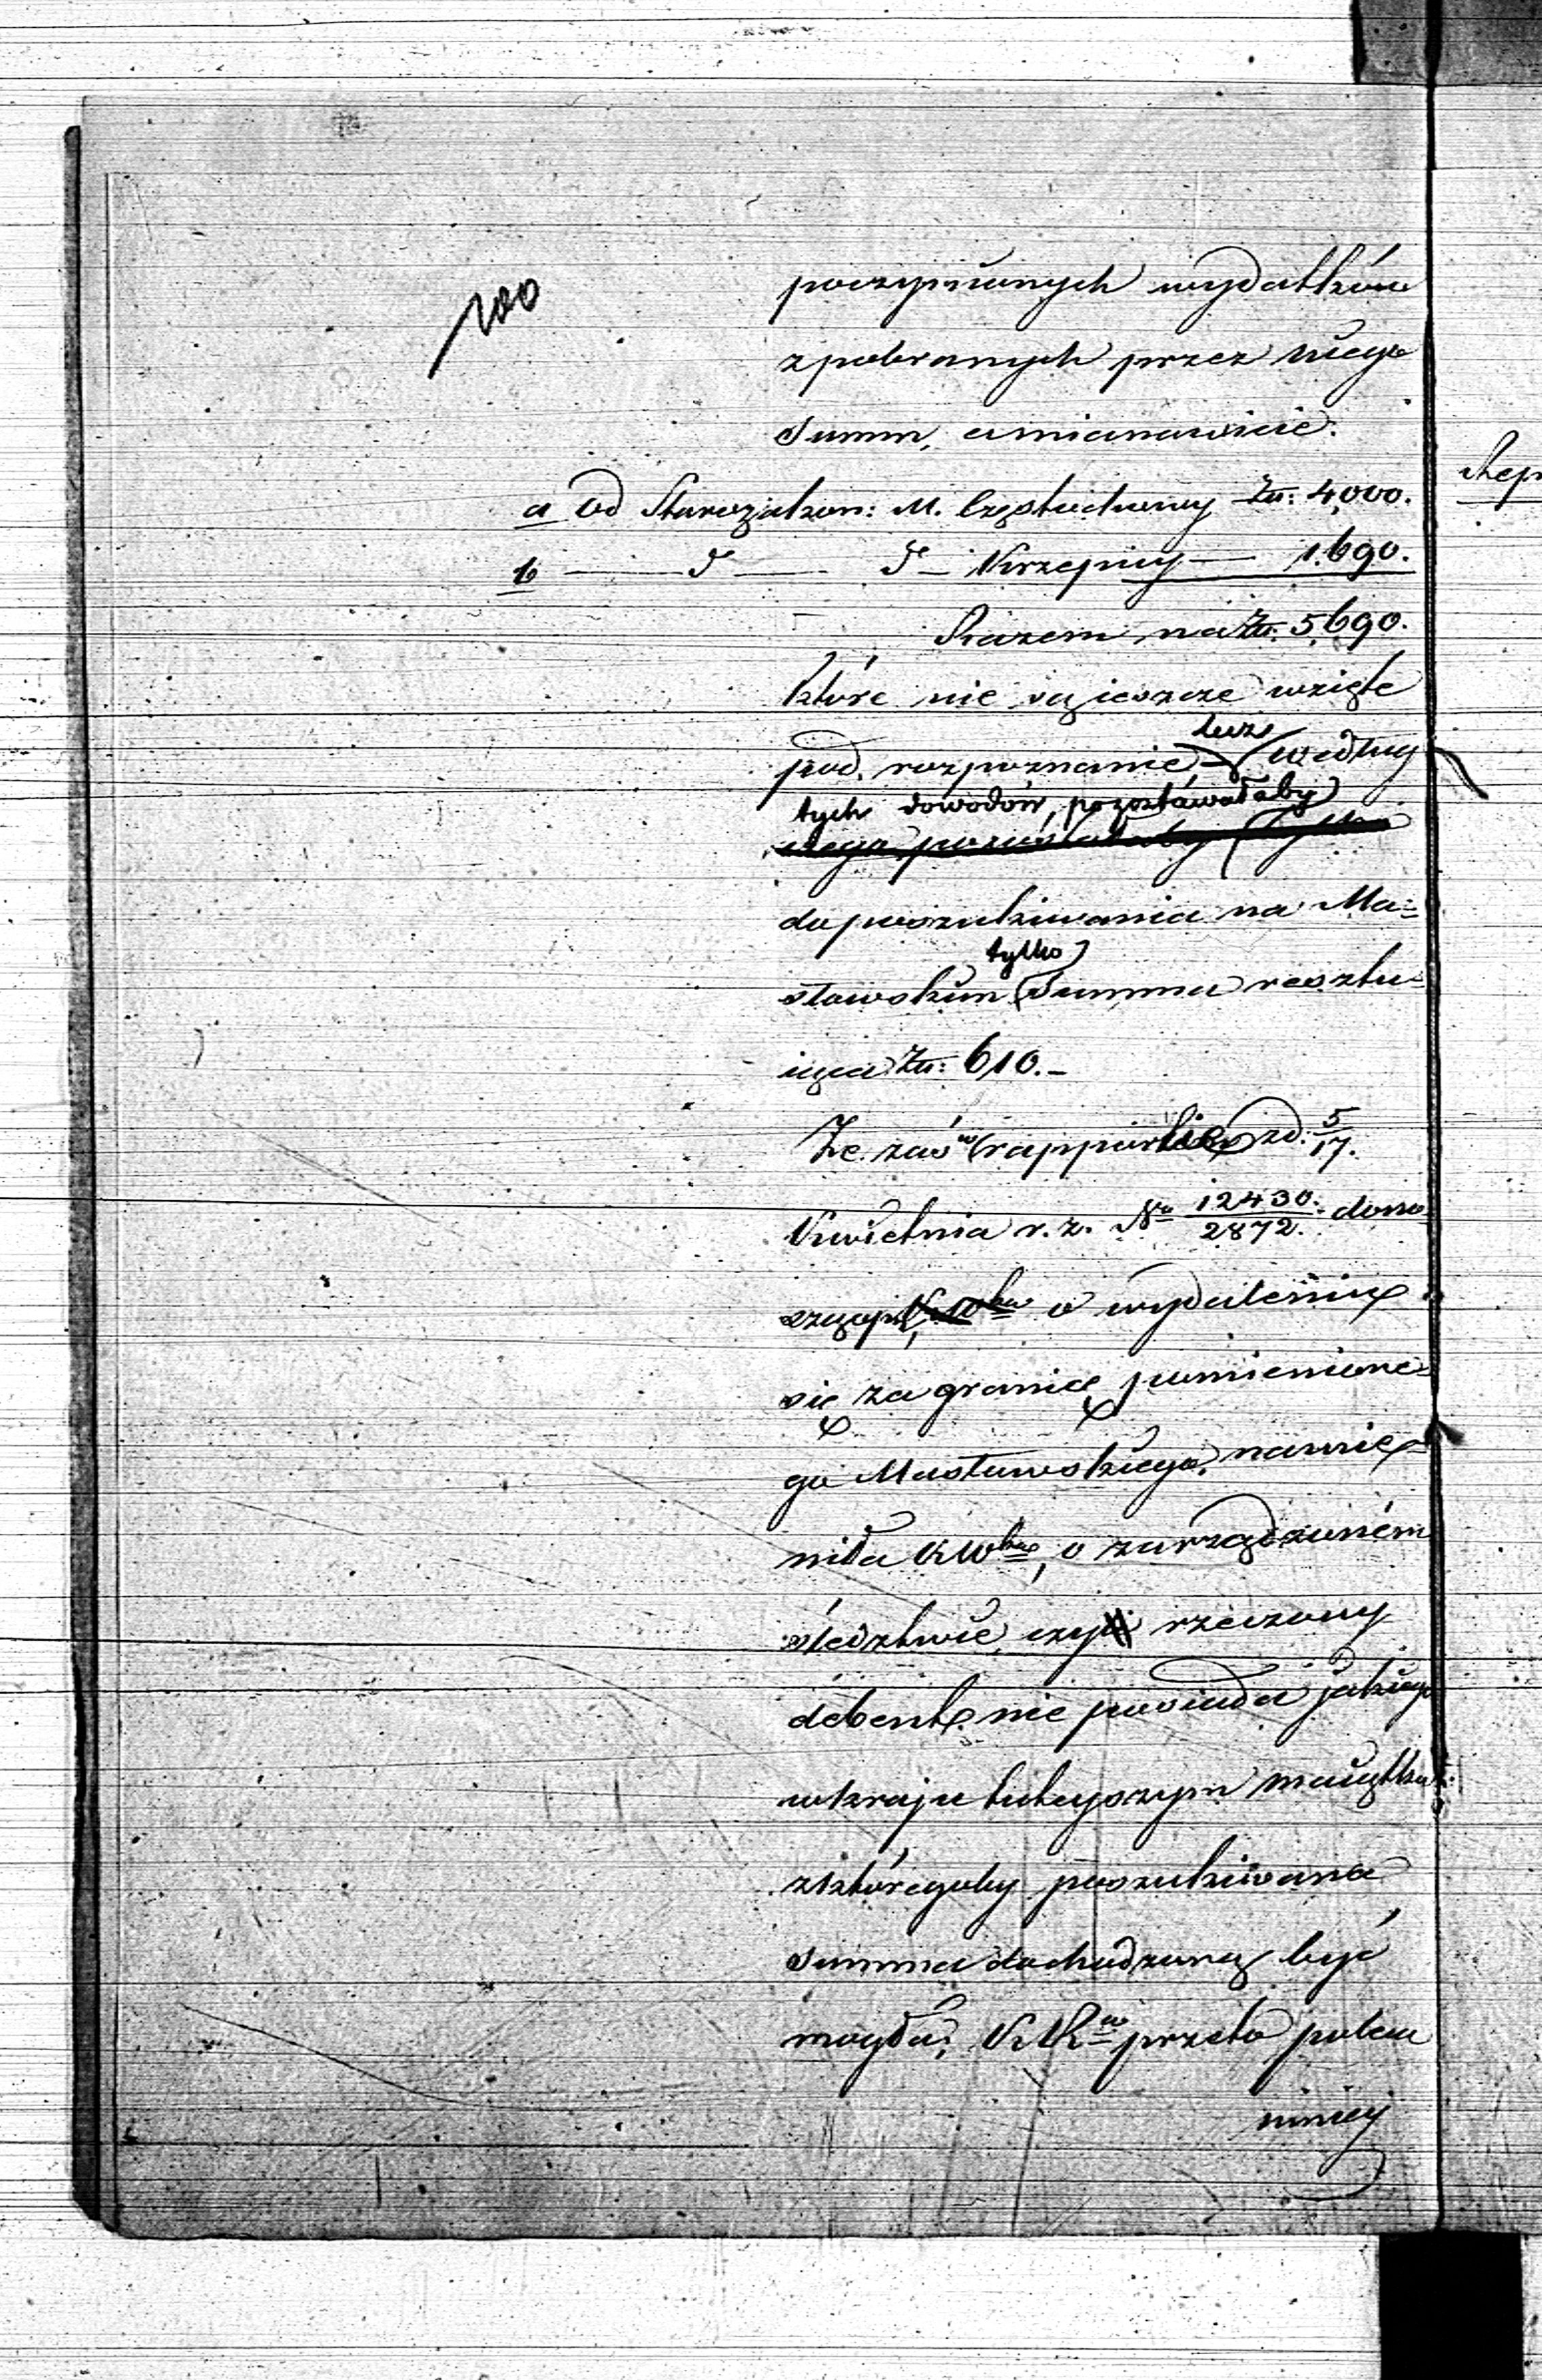 100
poczynionych wydatków
z pobranych przez niego
Summ, a mianowicie:
a od Starozakon: M. Częstochowy Zł: 4,000.
b — d° — d° — Krzepicy — 1.690.
Razem na Zł: 5,690.
które nie są ieszcze wzięte
lecz
pod rozpoznanie według
tych dowodów, pozostawałaby
do poszukiwania na Ma-
tylko
sławskim Summa resztu-
iąca Zł: 610.-
Że zaś w rapporcie z d. 5/17.
Kwietnia r. z. N° 12430/2872. dono-
sząc o wydaleniu
się za granicę pomienione-
go Masławskiego, nadmie-
niła KWka, o zarządzoném
śledztwie, czyli rzeczony
debent nie posiada jakiego
w kraju tuteyszym maiątku
z któregoby poszukiwana
Summa dochodzoną być
mogła; KR przeto poleca
niniey
Rep